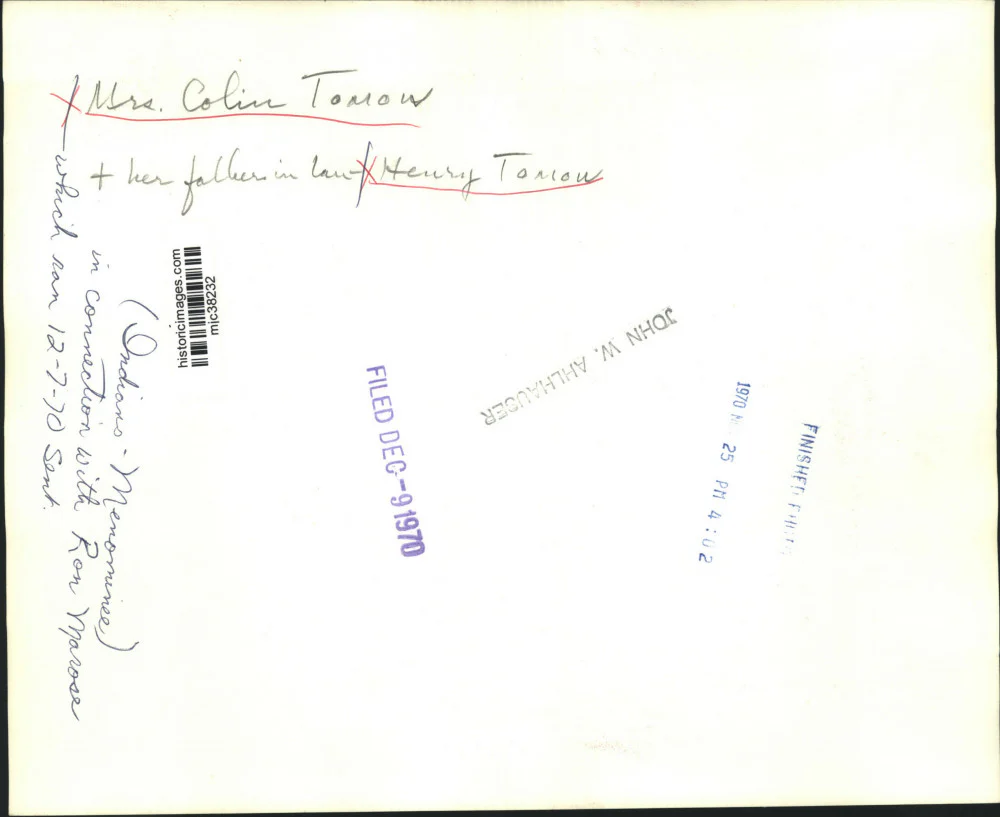 Mrs. Colin Tomow
+ her father in law Henry Tomow
(Indians - Menominee)
in connection with Ron Marose
which ran 12-7-70 Sent.
historicimages.com
mjc38232
JOHN W. AHLHAUSER
FILED DEC -9 1970
1970 25 PM 4:02
FINISHED